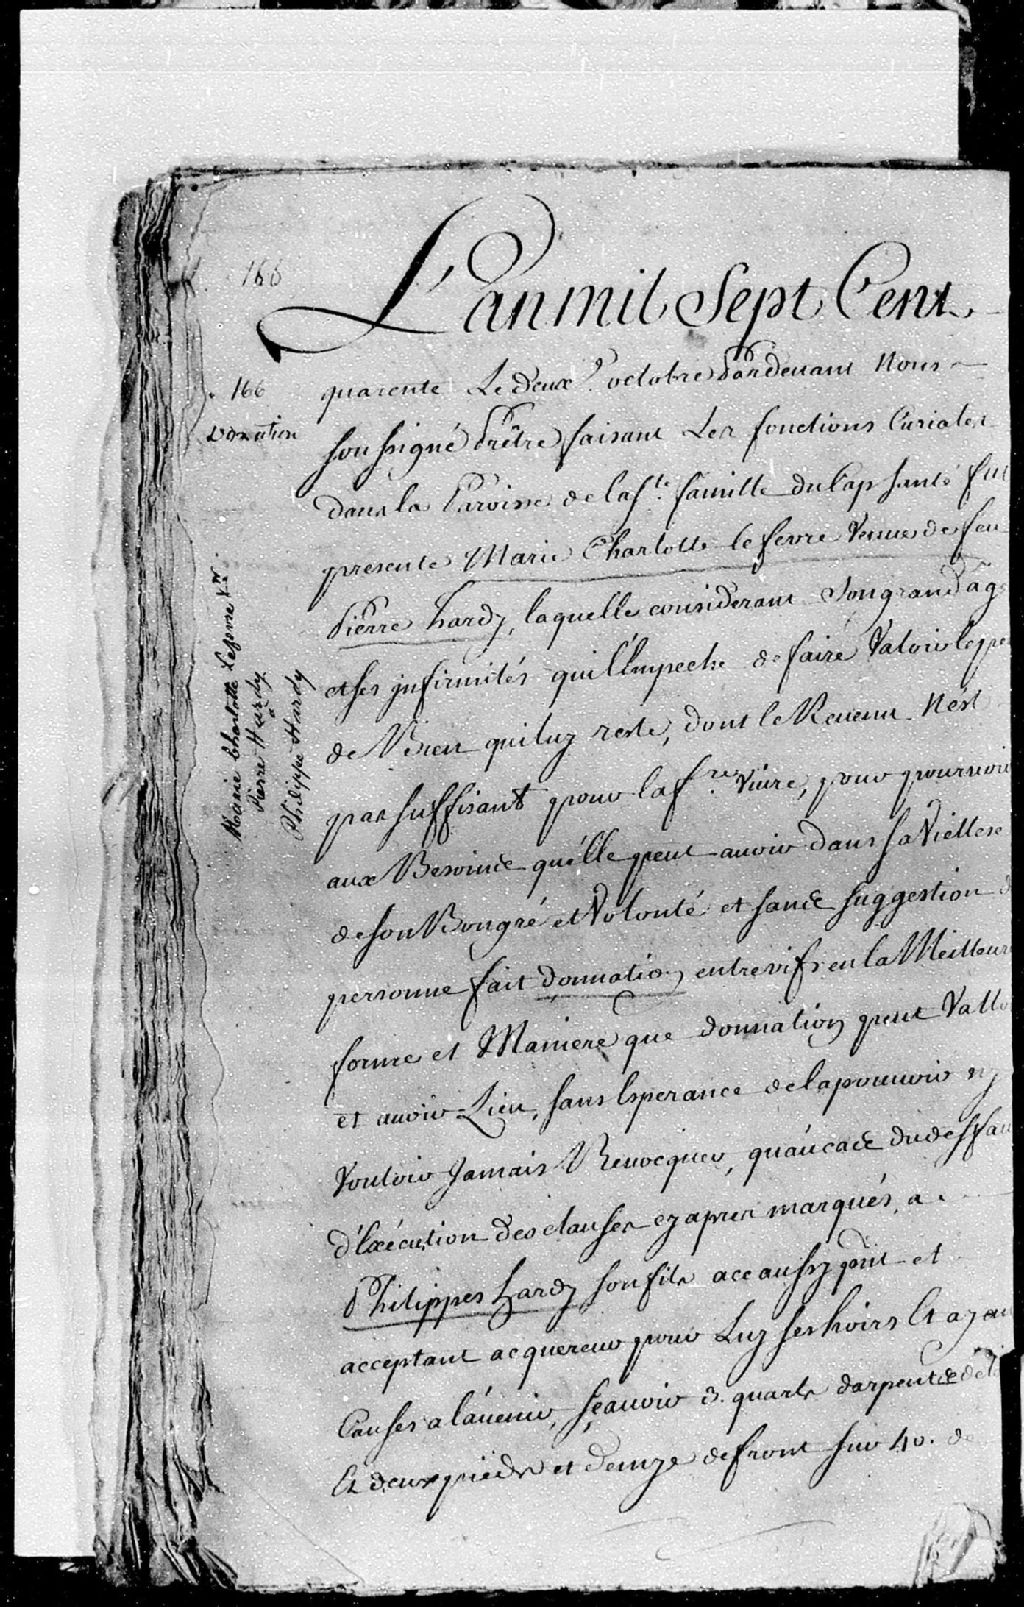 166
L'an mil Sept Cent
166
Donation
Marie Charlotte Lefevre Vve
Pierre Hardy
a
Philippe Hardy
quarente Le deuxe. octobre Pardevant Nous
soussigné Prêtre faisant Les fonctions Curiales
dans la Paroisse de la Ste. famille du Cap santé fut
presente Marie Charlotte le fevre Veuve de feu
Pierre hardy, laquelle considerant son grand âge
et ses jnfirmités qui l'Empeche de faire Valoir le peu
de Bien qui luy reste, dont le Revenu N'est
pas suffisant pour la fre. Vivre, pour pourvoir
aux Besoinds qu'élle peut avoir dans sa Viellesse
de son Bongré et Volonté et sands suggestion de
personne fait donnation entre vifs en la Meilleure
forme et Maniere que donnation peut Vallo
et avoir Lieu, sans Esperance de la pouvoir ny
Vouloir Jamais Revocquer, qu'aucads du deffau
d'Exécution des clauses cy apres marqués, a
Philippes hardy son fils a ce aussy pnt et
acceptant acquereur pour Luy ses hoirs Et ayan
Causes a l'avenir, sçavoir 3. quarts d'arpents de
Et deux pieds et demye de front sur 40. de